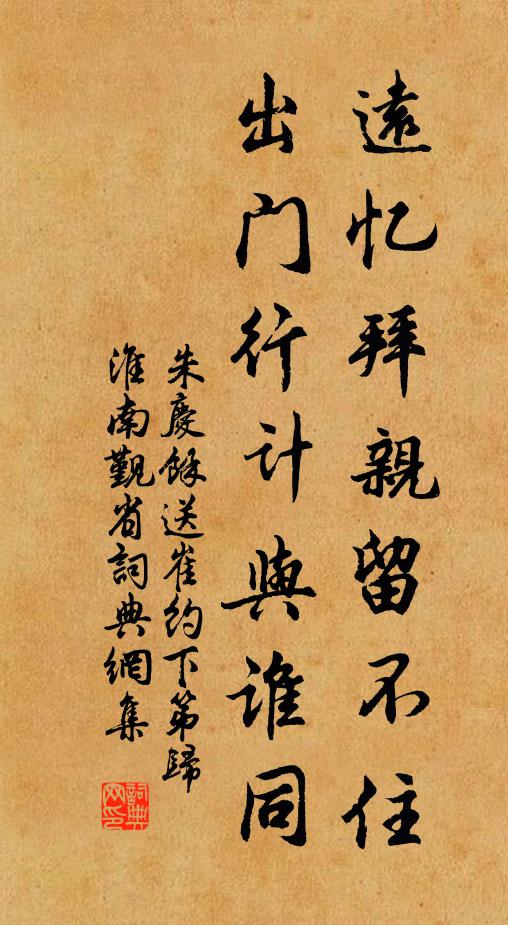 遠忆拜親留不住
出门行计與誰同
朱慶餘送崔约下第歸
淮南觐省詞典網集
詞典
网印